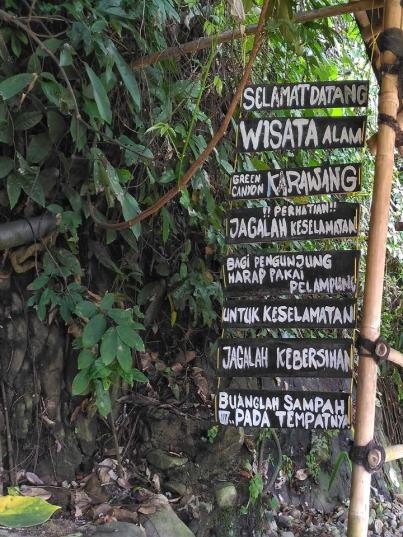 SELAMAT DATANG
WISATA ALAM
GREEN
CANYON KARAWANG
!! PERHATIAN !!
JAGALAH KESELAMATAN
BAGI PENGUNJUNG
HARAP PAKAI
PELAMPUNG
UNTUK KESELAMATAN
JAGALAH KEBERSIHAN
BUANGLAH SAMPAH
PADA TEMPATNYA